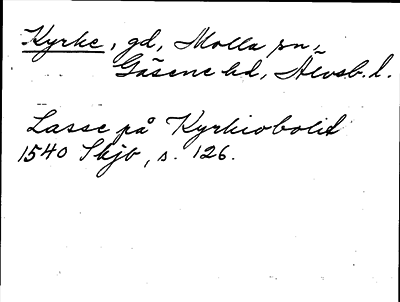 Kyrke, gd, Molla sn,
Gäsene hd, Älvsb. l.
Lasse på Kyrkiobolit
1540 Skjb, s. 126.